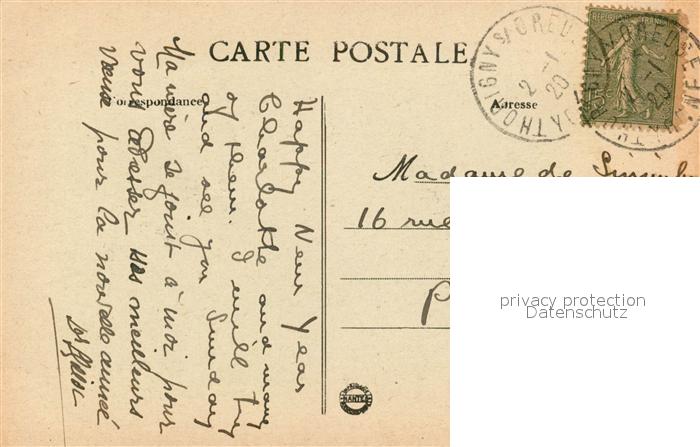 CARTE POSTALE
Correspondance
Adresse
REPUBLIQUE FRANÇAISE
THORIGNY S/ OREUSE
2 - 1
20
YONNE
Happy New Year
Charlotte and many
of them. I will try
and see you Sunday
Ma mère se joint à moi pour
vous adresser nos meilleurs
vœux pour la nouvelle année
Madame de
16 rue
P
privacy protection
Datenschutz
NANTES